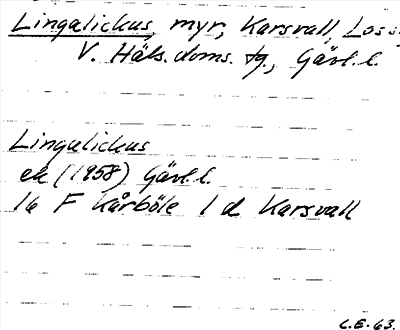 Lingalickus, myr, Karsvall, Loss.
V. Häls. doms. tg., Gävl. l.
Lingalickus
ek (1958) Gävl. l.
16 F Kårböle 1 d Karsvall
L.E. 63.